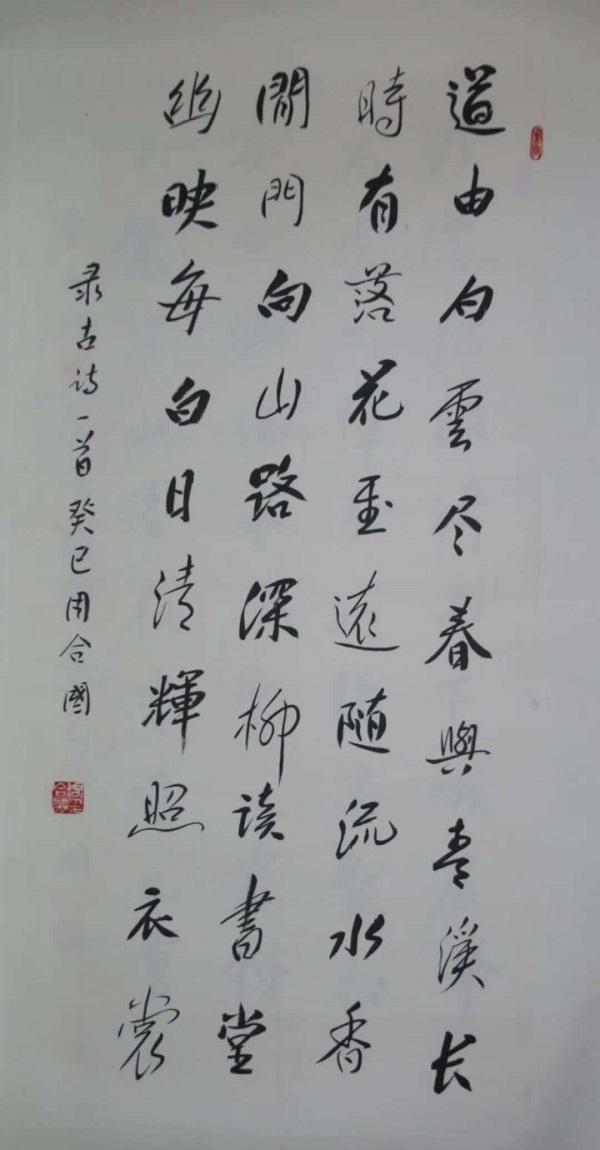 道由白雲尽春與青溪长
時有落花至遠随流水香
閒門向山路深柳读書堂
幽映每白日清輝照衣裳
录古诗一首癸巳周合國